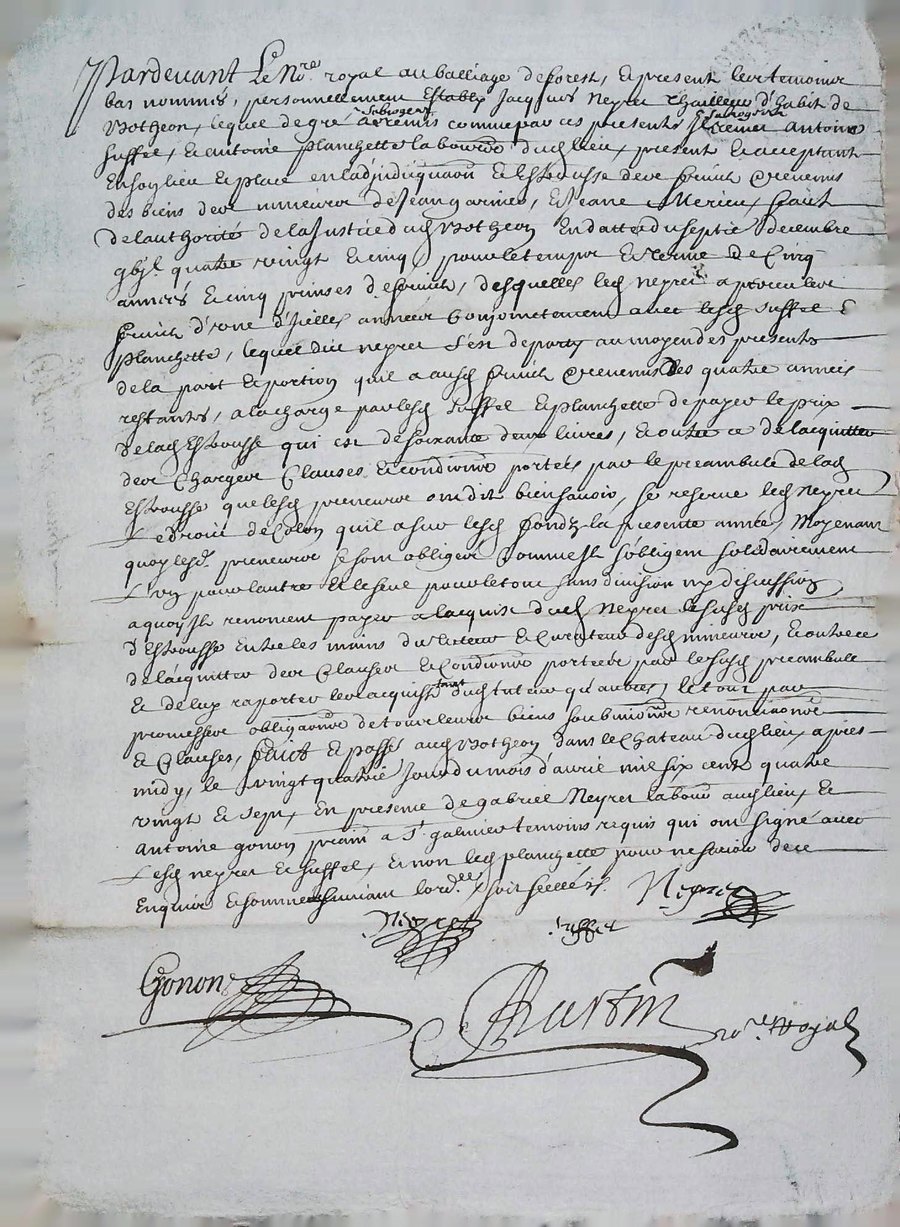 Pardevant Le No.re royal au balliage de forest, & present les temoins
bas nommés, personnellement Estably Jacques Neyret thailleur d'habit de
Botheon, lequel de gré a remis subrogé comme par ces presentes Il remet & subroge Antoine
Suffet, & antoine planchette laboure dud lieu, present & acceptant
En son lieu & place en l'adjudicaon & Estrousse des fruict & revenus
des biens des mineurs de Jean garnier, & Jeane Merieu, faict
de lauthorité de la Justice dud Botheon En datte du septie decembre
gbjc quatre vingt & cinq, pour le temps & terme de Cinq
années & cinq prinses de fruict, desquelles led neyret a perceu les
fruict d'vne d'Icelles années Conjointement avec lesd suffet &
planchette, lequel dit neyret s'est departy au moyen des presentes
de la part & portion quil a ausd fruict & revenus des quatre années
restantes, a la charge par lesd suffet & planchette de payer le prix
de lad Estrousse qui est de soixante deux livres, & outre ce de lacquitter
des Charges Clauses & condiōns portées par le preambule de lad
Estrousse que lesd preneurs ont dit bien sauoir, se reserve led Neyret
Le droit de Colon quil a sur lesd fondz la presente année, Moyenant
quoy lesd. preneurs se sont obliges comme Ils s'obligent solidairement
L'vn pour lautre & le seul pour le tout sans division ny discussion
a quoy Ils renoncent payer a lacquit dud Neyret le susd prix
d'Estrousse Entre les mains du tuteur & Curateur desd mineurs, & outre ce
de lacquitter des Clauses & Condiōns portées par le susd preambule
& de luy raporter les acquis tant dud tuteur qu'autres, le tout par
promesses obligaōns de tous leurs biens soubmiōns renonciaōns
& Clauses, faict & passé aud Botheon dans le Chateau dud lieu, apres
midy, le vingt quatrie Jour du mois d'auril mil six cent quatre
vingt & sept, En presence de gabriel Neyret laboure aud lieu, &
Antoine gonon praticn a St. galmier temoins requis qui ont signé avec
Lesd neyret & suffet, & non led planchette pour ne scauoir de ce
Enquis & sommé suivant lord.ce, soit scellé
Neyret
Neyret suffet
Gonon
No.re Royal